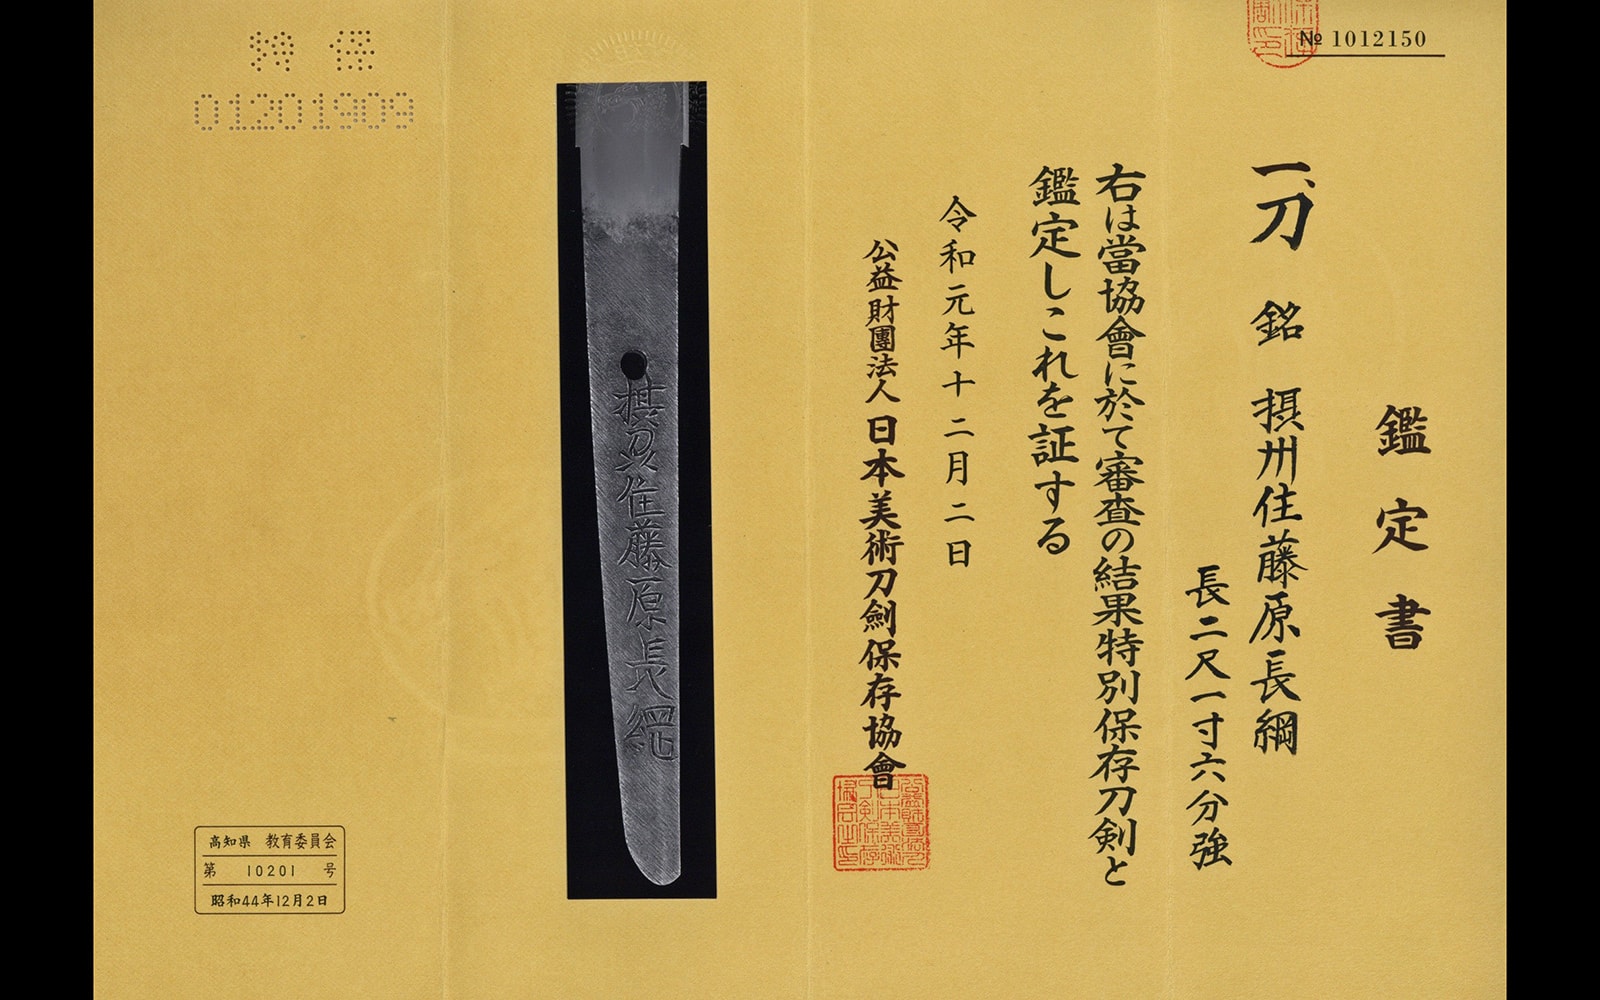 № 1012150
鑑定書
一、刀 銘 摂州住藤原長綱
長二尺一寸六分強
右は當協會に於て審査の結果特別保存刀剣と
鑑定しこれを証する
令和元年十二月二日
公益財團法人日本美術刀劍保存協會
摂州住藤原長綱
特保
01201909
高知県 教育委員会
第 10201 号
昭和44年12月2日